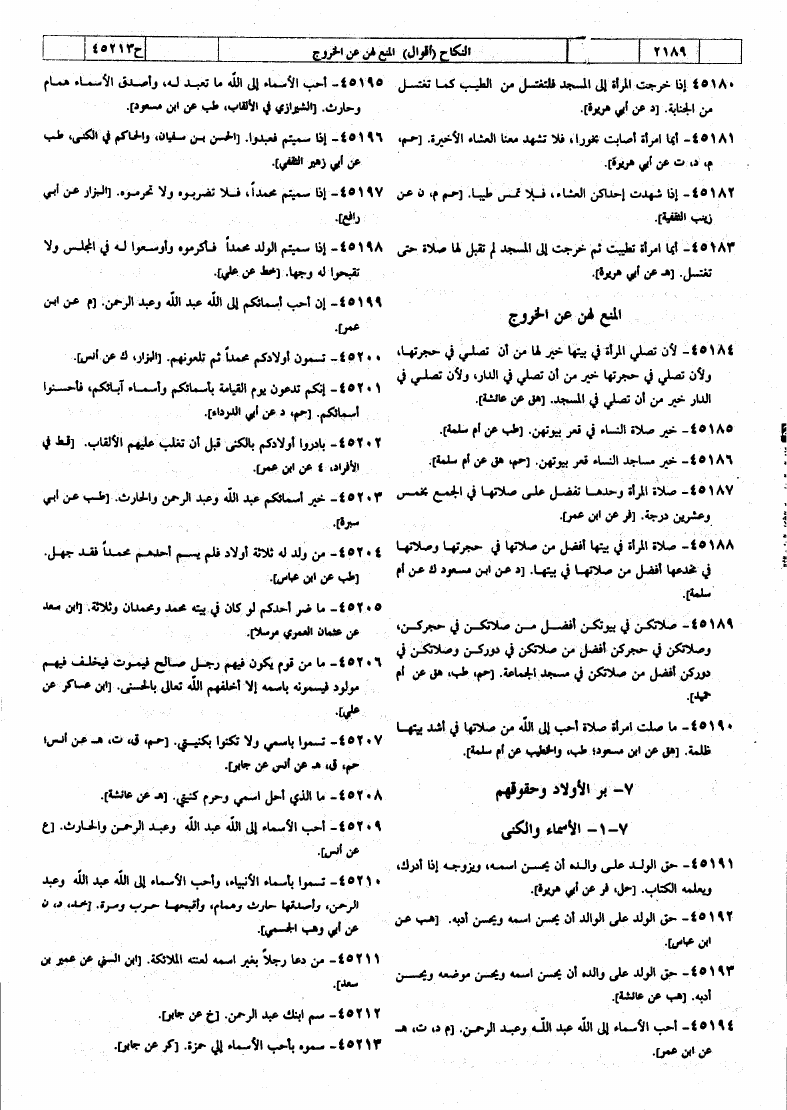 ٢١٨٩
النكاح (أقوال) المنع لهن عن الخروج
ح٤٥٢١٣
٤٥١٨٠- إذا خرجت المرأة إلى المسجد فلتغتسل من الطيب كما تغتسل
من الجنابة. [د عن أبي هريرة].
٤٥١٨١- أيما امرأة أصابت بخورا، فلا تشهد معنا العشاء الأخيرة. [حم،
م، د، ت عن أبي هريرة].
٤٥١٨٢- إذا شهدت إحداكن العشاء، فلا تمس طيبا. [حم م، ن عن
زينب الثقفية].
٤٥١٨٣- أيما امرأة تطيبت ثم خرجت إلى المسجد لم تقبل لها صلاة حتى
تغتسل. [هـ عن أبي هريرة].
المنع لهن عن الخروج
٤٥١٨٤- لأن تصلي المرأة في بيتها خير لها من أن تصلي في حجرتها،
ولأن تصلي في حجرتها خير من أن تصلي في الدار، ولأن تصلي في
الدار خير من أن تصلي في المسجد. [هق عن عائشة].
٤٥١٨٥- خير صلاة النساء في قعر بيوتهن. [طب عن أم سلمة].
٤٥١٨٦- خير مساجد النساء قعر بيوتهن. [حم، هق عن أم سلمة].
٤٥١٨٧- صلاة المرأة وحدها تفضل على صلاتها في الجمع بخمس
وعشرين درجة. [فر عن ابن عمر].
٤٥١٨٨- صلاة المرأة في بيتها أفضل من صلاتها في حجرتها وصلاتها
في مخدعها أفضل من صلاتها في بيتها. [د عن ابن مسعود ك عن أم
سلمة].
٤٥١٨٩- صلاتكن في بيوتكن أفضل من صلاتكن في حجركن،
وصلاتكن في حجركن أفضل من صلاتكن في دوركن وصلاتكن في
دوركن أفضل من صلاتكن في مسجد الجماعة. [حم، طب، هق عن أم
حميد].
٤٥١٩٠- ما صلت امرأة صلاة أحب إلى الله من صلاتها في أشد بيتها
ظلمة. [هق عن ابن مسعود؛ طب، والخطيب عن أم سلمة].
٧- بر الأولاد وحقوقهم
٧-١- الأسماء والكنى
٤٥١٩١- حق الولد على والده أن يحسن اسمه، ويزوجه إذا أدرك،
ويعلمه الكتاب. [حل، فر عن أبي هريرة].
٤٥١٩٢- حق الولد على الوالد أن يحسن اسمه ويحسن أدبه. [هب عن
ابن عباس].
٤٥١٩٣- حق الولد على والده أن يحسن اسمه ويحسن موضعه ويحسن
أدبه. [هب عن عائشة].
٤٥١٩٤- أحب الأسماء إلى الله عبد الله وعبد الرحمن. [م د، ت، هـ
عن ابن عمر].
٤٥١٩٥- أحب الأسماء إلى الله ما تعبد له، وأصدق الأسماء همام
وحارث. [الشيرازي في الألقاب، طب عن ابن مسعود].
٤٥١٩٦- إذا سميتم فعبدوا. [الحسن بن سفيان، والحاكم في الكنى، طب
عن أبي زهير الثقفي].
٤٥١٩٧- إذا سميتم محمداً، فلا تضربوه ولا تحرموه. [البزار عن أبي
رافع].
٤٥١٩٨- إذا سميتم الولد محمداً فأكرموه وأوسعوا له في المجلس ولا
تقبحوا له وجها. [خط عن علي].
٤٥١٩٩- إن أحب أسمائكم إلى الله عبد الله وعبد الرحمن. [م عن ابن
عمر].
٤٥٢٠٠- تسمون أولادكم محمداً ثم تلعنونهم. [البزار، ك عن أنس].
٤٥٢٠١- إنكم تدعون يوم القيامة بأسمائكم وأسماء آبائكم، فأحسنوا
أسمائكم. [حم، د عن أبي الدرداء].
٤٥٢٠٢- بادروا أولادكم بالكنى قبل أن تغلب عليهم الألقاب. [قط في
الأفراد، ٤ عن ابن عمر].
٤٥٢٠٣- خير أسمائكم عبد الله وعبد الرحمن والحارث. [طب عن أبي
سبرة].
٤٥٢٠٤- من ولد له ثلاثة أولاد فلم يسم أحدهم محمداً فقد جهل.
[طب عن ابن عباس].
٤٥٢٠٥- ما ضر أحدكم لو كان في بيته محمد ومحمدان وثلاثة. [ابن سعد
عن عثمان العمري مرسلا].
٤٥٢٠٦- ما من قوم يكون فيهم رجل صالح فيموت فيخلف فيهم
مولود فيسمونه باسمه إلا أخلفهم الله تعالى بالحسنى. [ابن عساكر عن
علي].
٤٥٢٠٧- تسموا باسمي ولا تكنوا بكنيتي. [حم، ق، ت، هـ عن أنس؛
حم، ق، هـ عن أنس عن جابر].
٤٥٢٠٨- ما الذي أحل اسمي وحرم كنيتي. [هـ عن عائشة].
٤٥٢٠٩- أحب الأسماء إلى الله عبد الله وعبد الرحمن والحارث. [ع
عن أنس].
٤٥٢١٠- تسموا بأسماء الأنبياء، وأحب الأسماء إلى الله عبد الله وعبد
الرحمن، وأصدقها حارث وهمام، وأقبحها حرب ومرة. [خد، د، ن
عن أبي وهب الجسمي].
٤٥٢١١- من دعا رجلاً بغير اسمه لعنته الملائكة. [ابن السني عن عمير بن
سعد].
٤٥٢١٢- سم ابنك عبد الرحمن. [خ عن جابر].
٤٥٢١٣- سموه بأحب الأسماء إلي حمزة. [كر عن جابر].